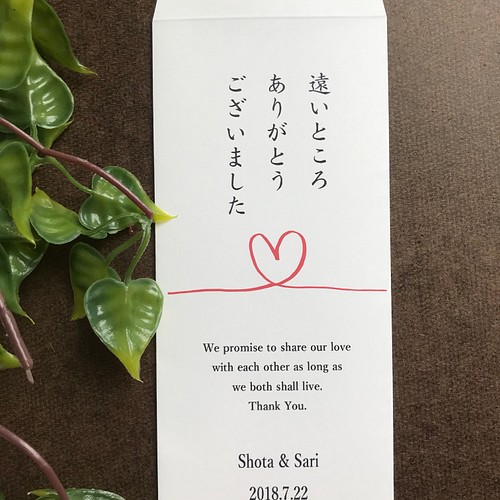 遠いところ
ありがとう
ございました
We promise to share our love
with each other as long as
we both shall live.
Thank You.
Shota & Sari
2018.7.22